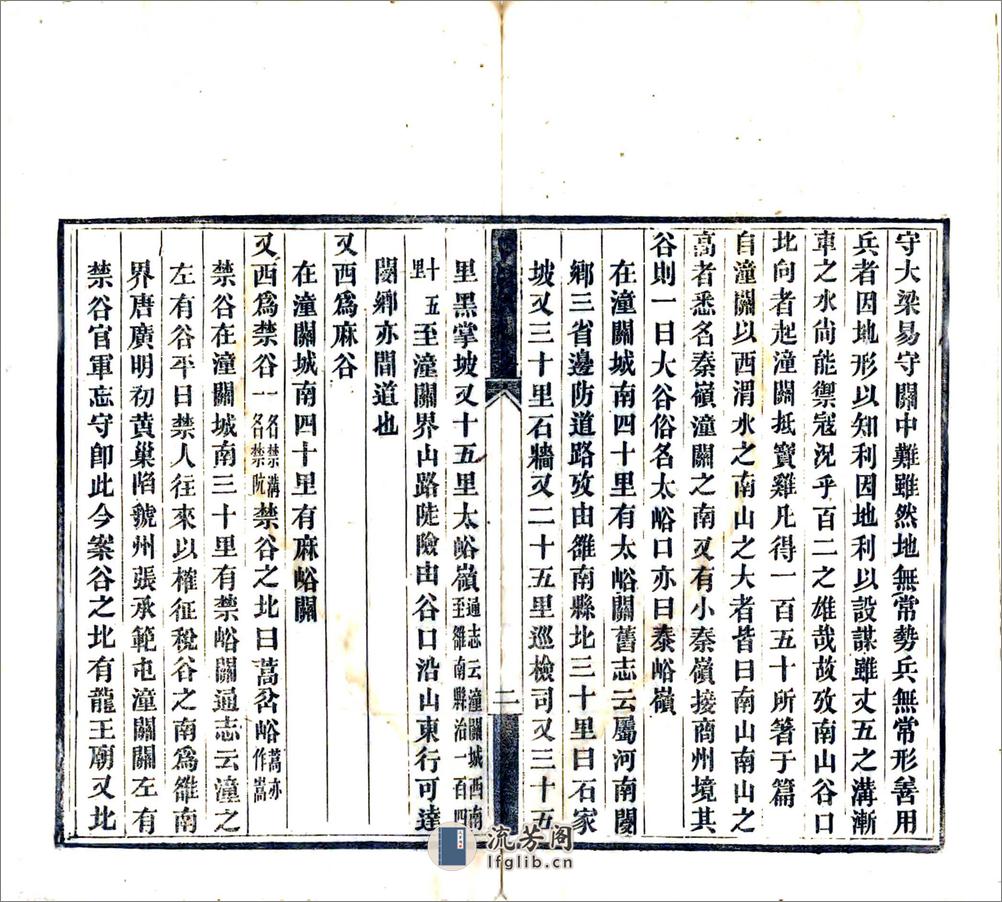 守大梁易守關中難雖然地無常勢兵無常形善用
兵者因地形以知利因地利以設謀雖丈五之溝漸
車之水尙能禦寇況乎百二之雄哉故攷南山谷口
北向者起潼關抵寶雞凡得一百五十所箸于篇
自潼關以西渭水之南山之大者皆曰南山南山之
高者悉名秦嶺潼關之南又有小秦嶺接商州境其
谷則一曰大谷俗名太峪口亦曰泰峪嶺
在潼關城南四十里有太峪關舊志云屬河南閿
鄉三省邊防道路攷由雒南縣北三十里曰石家
坡又三十里石牆又二十五里巡檢司又三十五
二
里黑掌坡又十五里太峪嶺通志云潼關城西南至雒南縣治一百四
十五里至潼關界山路陡險由谷口沿山東行可達
閿鄉亦間道也
又西爲麻谷
在潼關城南四十里有麻峪關
又西爲禁谷一名禁溝一名禁阬禁谷之北曰蒿岔峪蒿亦作嵩
禁谷在潼關城南三十里有禁峪關通志云潼之
左有谷平日禁人往來以榷征稅谷之南爲雒南
界唐廣明初黄巢陷虢州張承範屯潼關關左有
禁谷官軍忘守卽此今案谷之北有龍王廟又北
流芳阁
lfglib.cn